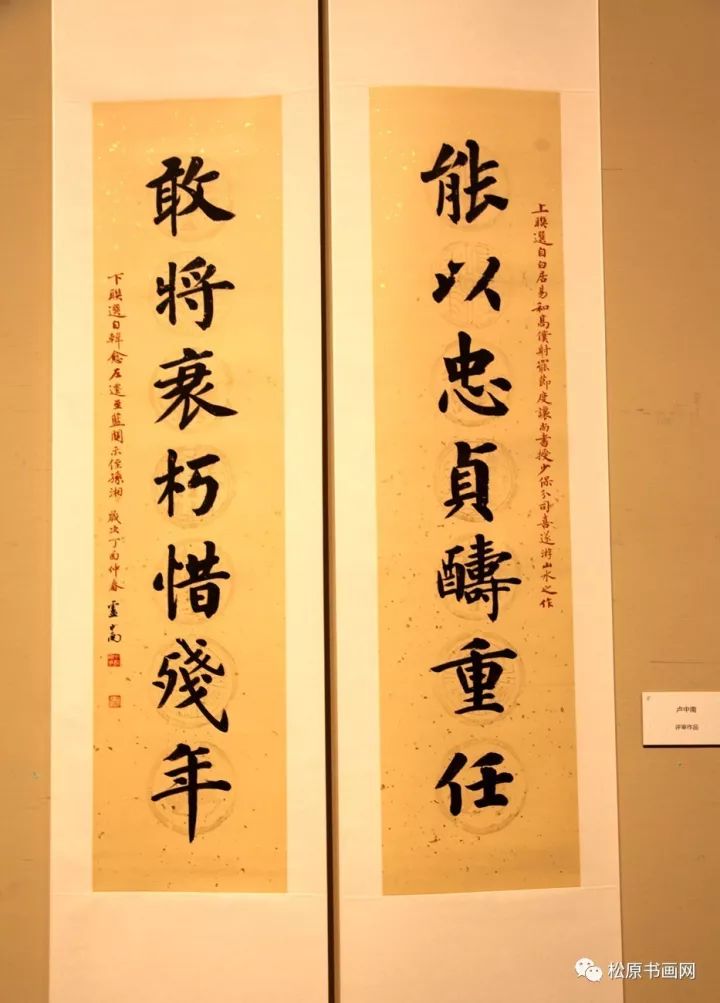 能以忠貞酬重任
上聯選自白居易和高僕射罷節度讓尚書授少保分司喜遂游山水之作
敢將衰朽惜殘年
下聯選自韓愈左遷至藍關示侄孫湘 歲次丁酉仲春 盧中南
卢中南
评审作品
松原书画网